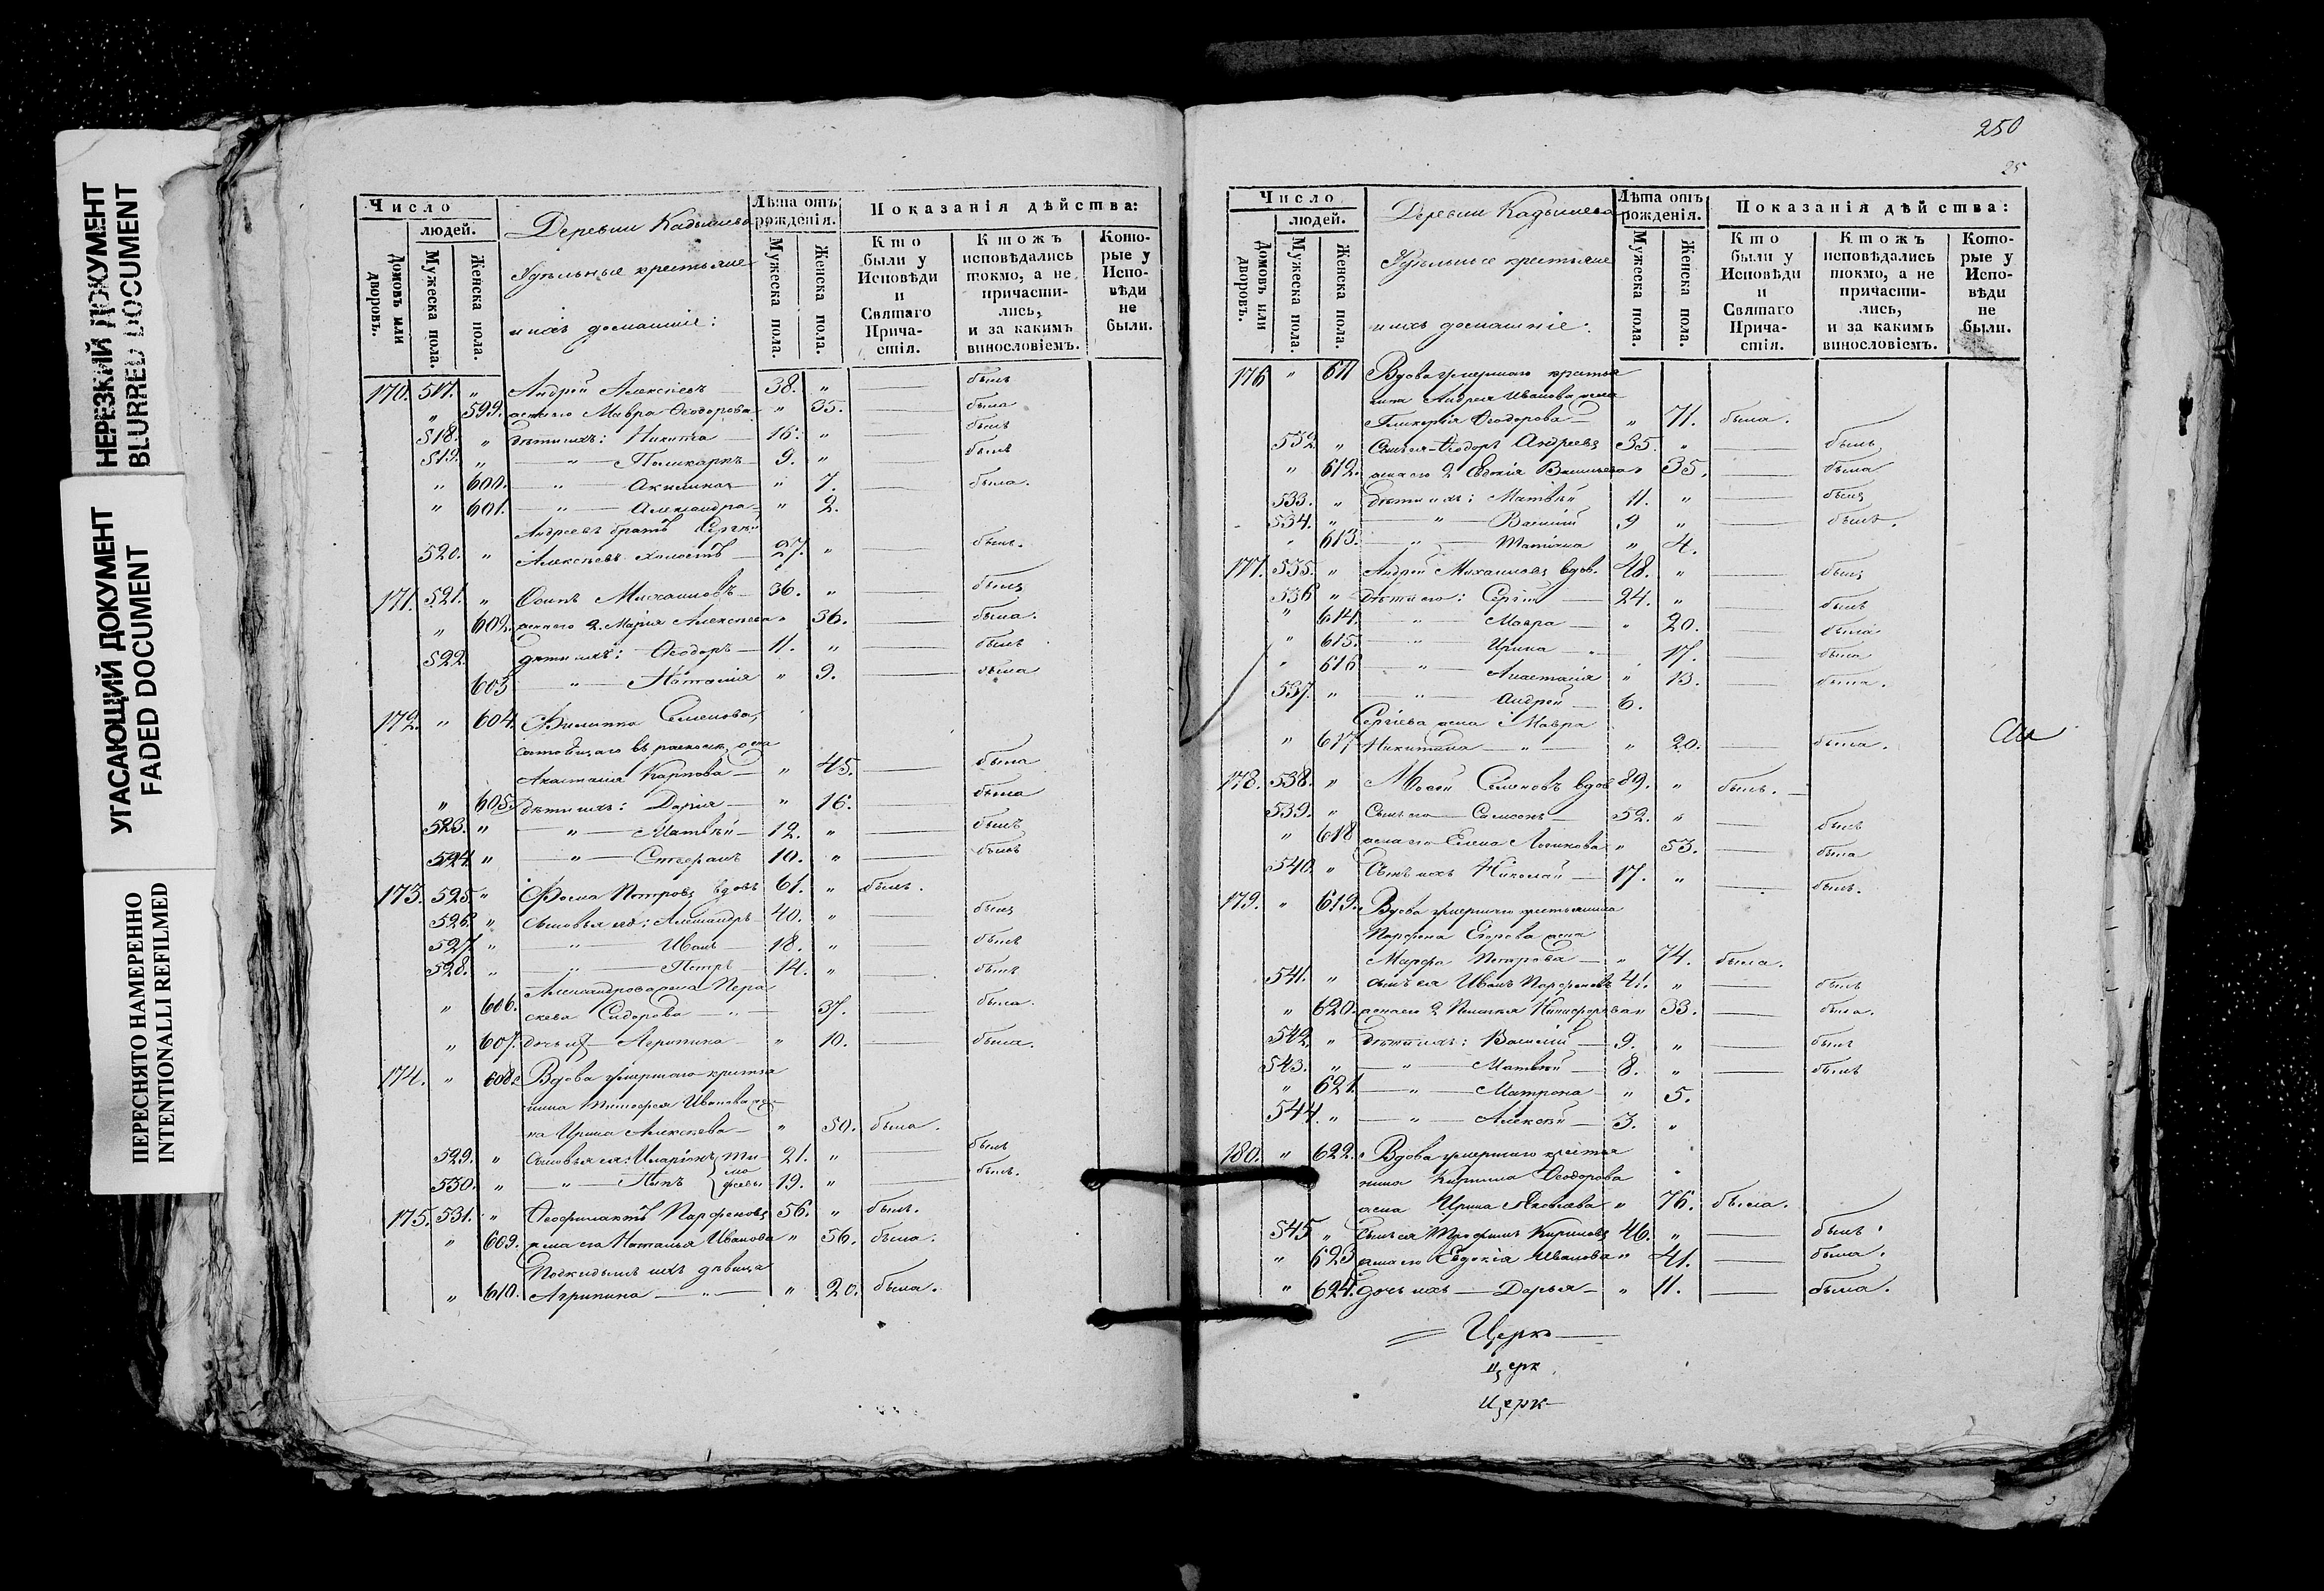 НЕРЕЗКИЙ ДОКУМЕНТ
BLURRED DOCUMENT
УГАСАЮЩИЙ ДОКУМЕНТ
FADED DOCUMENT
ПЕРЕСНЯТО НАМЕРЕННО
INTENTIONALLI REFILMED
Число
людей.
Домовъ или дворовъ.
Мужеска пола.
Женска пола.
Деревни Кадышева
Удѣльные крестьяне
и ихъ домашніе:
Лѣта отъ рожденія.
Мужеска пола.
Женска пола.
Показанія дѣйства:
Кто были у Исповѣди и Святаго Причастія.
Ктожъ исповѣдались токмо, а не причастились, и за какимъ винословіемъ.
Которые у Исповѣди не были.
170. 517. " Андрей Алексѣевъ 38. " — былъ
" 599. жена его Мавра Ѳеодорова " 35. — была
518. " дѣти ихъ: Никита 16. " — былъ
519. " — " — Поликарпъ 9. " — былъ
" 600. — " — Акилина " 7. — была.
" 601. — " — Александра " 2.
Андреевъ братъ Сергѣй
520. " Алексѣевъ холостъ 27. " — былъ.
171. 521. " Осипъ Михаиловъ 36. " — былъ
" 602. жена его 2. Марія Алексѣева " 36. — была.
522. дѣти ихъ: Ѳеодоръ 11. " — былъ
603 — " — Наталия " 9. — была
172. " 604. Филиппа Семенова,
состоящаго въ расколѣ, жена
Анастасия Карпова " 45. — была
" 605. дѣти ихъ: Дарія " 16. — была
523. " — " — Матвѣй 12. " — былъ
524. " — " — Стефанъ 10. " — былъ
173. 525. " Фома Петровъ вдовъ 61. " былъ.
526. " Сыновья его: Александръ 40. " — былъ
527. " — " — Иванъ 18. " — былъ
528. " — " — Петръ 14. " — былъ
Александрова жена Пара
" 606. скева Сидорова — " — 37. — была.
" 607. дочь их Агрипина " 10. — была.
174. " 608. Вдова умершаго крестья
нина Тимофея Иванова же
на Ирина Алексѣева " 50. была.
529. " Сыновья ея: Иларіонъ Ти 21. " — былъ
530. " — " — Петръ мо феевы 19. " — былъ.
175. 531. " Ѳеофилактъ Парфеновъ 56. " былъ.
" 609. жена его Наталья Иванова " 56. была.
Подкидышъ ихъ дѣвица
" 610. Агрипина — " — " 20. была.
250
25
Число
людей.
Домовъ или дворовъ.
Мужеска пола.
Женска пола.
Деревни Кадышева
Удѣльные крестьяне
и ихъ домашніе:
Лѣта отъ рожденія.
Мужеска пола.
Женска пола.
Показанія дѣйства:
Кто были у Исповѣди и Святаго Причастія.
Ктожъ исповѣдались токмо, а не причастились, и за какимъ винословіемъ.
Которые у Исповѣди не были.
176 " 611 Вдова умершаго крестья
нина Андрея Иванова жена
Гликерія Ѳеодорова " 71. была.
532 " Сынъ ея Ѳеодоръ Андреевъ 35. " — былъ
" 612. жена его 2 Евдокія Васильева " 35. — была
533. " дѣти ихъ: Матвѣй 11. " — былъ
534. " — " — Василій 9 " — былъ.
" 613. — " — Татіана " 4.
177. 535. " Андрей Михаиловъ вдов. 48. " — былъ
536 " Дѣти его: Сергій 24. " — былъ
" 614. — " — Мавра " 20. — была
" 615. — " — Ирина " 17. — была
" 616 — " — Анастасія " 13. — была.
537. " — " — Андрей 6.
Сергіева жена Мавра
" 617 Никитина — " — " 20. — была.
178. 538. " Мосей Семеновъ вдов 89. " былъ.
539. " Сынъ его Самсонъ 52. " — былъ
" 618 жена его Елена Логинова " 53. — была
540. " Сынъ ихъ Николай 17. " — былъ.
179. " 619. Вдова умершаго крестьянина
Парфена Егорова жена
Марфа Петрова " 74. была.
541. " сынъ ея Иванъ Парфеновъ 41. " — былъ
" 620. жена его 2 Пелагея Никифорова " 33. — была.
542 " дѣти ихъ: Василій 9. " — былъ
543. " — " — Матвѣй 8. " — былъ
" 621. — " — Матрона " 5.
544. " — " — Алексѣй 3. "
180. " 622. Вдова умершаго крестья
нина Кирилла Ѳеодорова
жена Ирина Яковлева " 76. была.
545 " Сынъ ея Трофимъ Кириловъ 46. " — былъ.
" 623 жена его Евдокія Иванова " 41. — была.
" 624. дочь ихъ — Дарья " 11. — была.
Церк
церк
церк